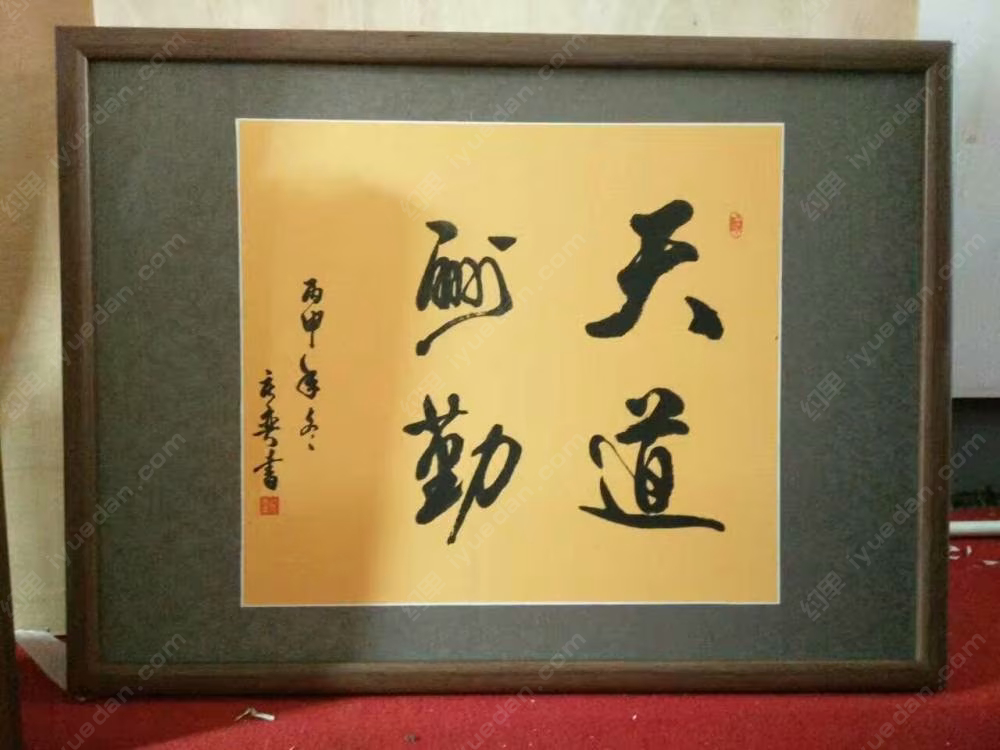 天道
酬勤
丙申年冬
书
iyuedan.com